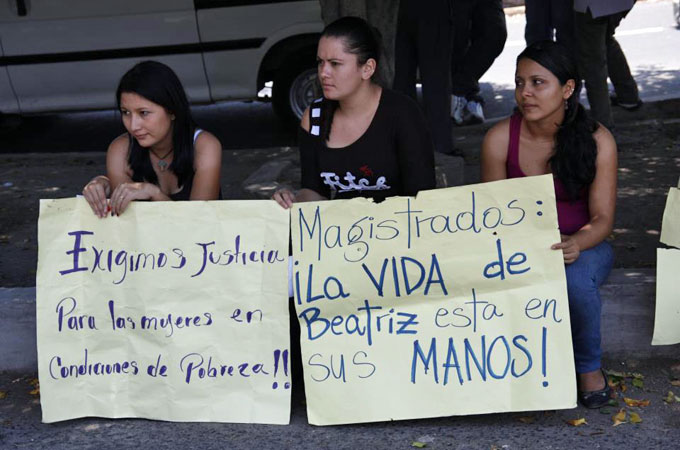 Exigimos Justicia
Para las mujeres en
Condiciones de Pobreza!!
Magistrados:
¡La VIDA de
Beatriz esta en
sus MANOS!